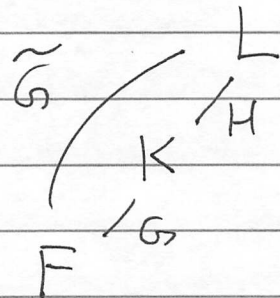 G̃ L
H
K
G
F